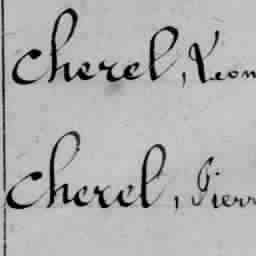 Cherel, Léon
Cherel, Pierr